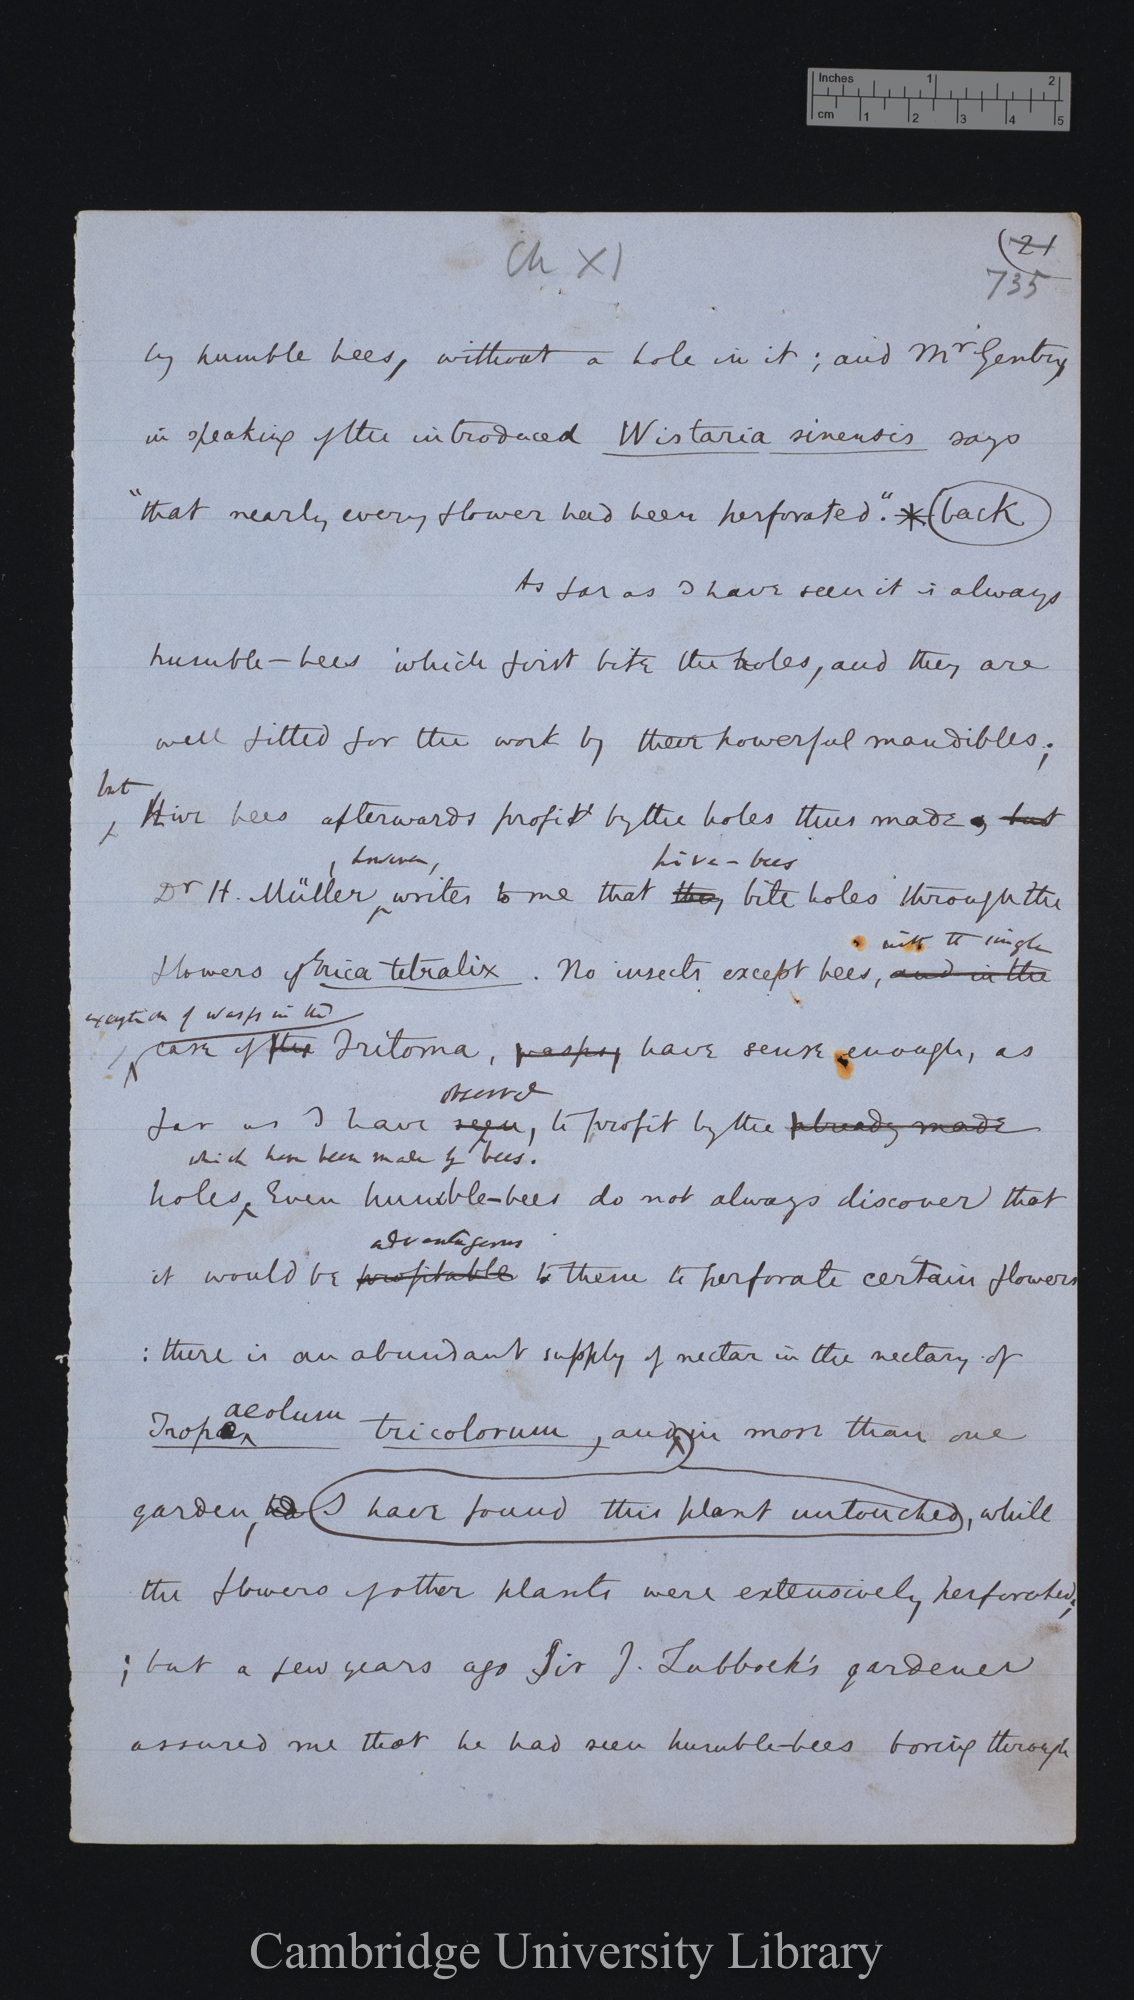 Inches 1 2
cm 1 2 3 4 5
Ch XI
(21
735
by humble bees, without a hole in it; and Mr Gentry,
in speaking of the introduced Wistaria sinensis says
"that nearly every flower had been perforated". * back
As far as I have seen it is always
humble-bees which first bite the holes, and they are
well fitted for the work by their powerful mandibles;
but
Hive bees afterwards profit by the holes thus made, but
, however, hive-bees
Dr H. Müller writes to me that they bite holes through the
with the single
flowers of Erica tetralix. No insects except bees, and in the
exception of wasps in the
case of the Tritoma, wasps, have sense enough, as
observed
far as I have seen, to profit by the already made
which have been made by bees.
holes. Even humble-bees do not always discover that
advantageous
it would be profitable to them to perforate certain flowers
: there is an abundant supply of nectar in the nectary of
aeolum
Tropae tricolorum, and in more than one
garden, I have found this plant untouched, while
the flowers of other plants were extensively perforated;
; but a few years ago Sir J. Lubbock's gardener
assured me that he had seen humble-bees boring through
Cambridge University Library